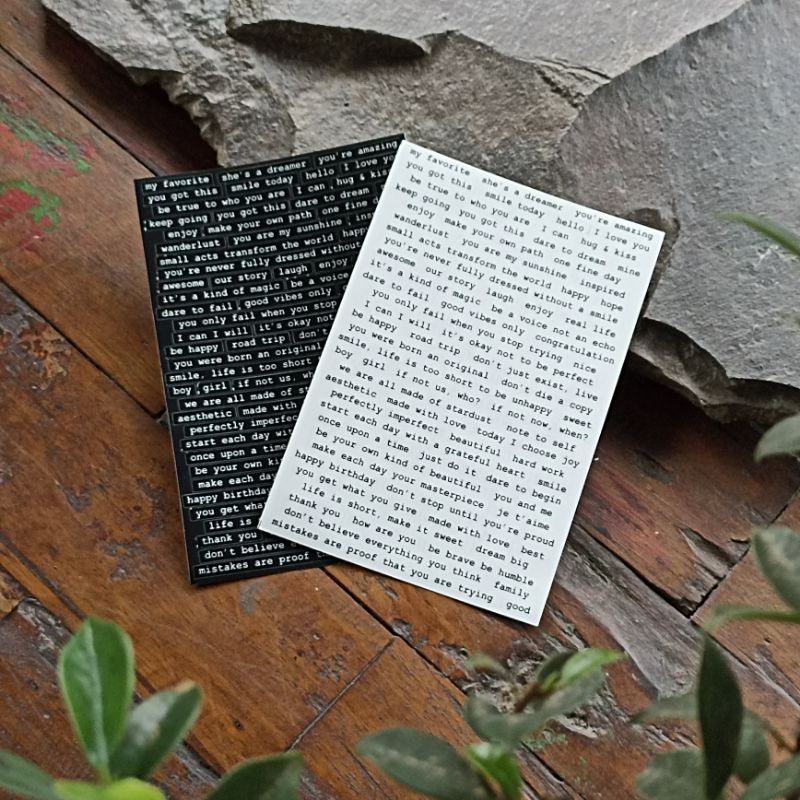 my favorite she's a dreamer you're amazing
you got this smile today hello I love you
be true to who you are I can hug & kiss
keep going you got this dare to dream
enjoy make your own path one fine
wanderlust you are my sunshine
small acts transform the world
you're never fully dressed without
awesome our story laugh enjoy
it's a kind of magic be a voice
dare to fail good vibes only
you only fail when you stop
I can I will it's okay not
be happy road trip
you were born an original
smile, life is too short
boy girl if not us, 
we are all made of
aesthetic made with
perfectly imperfect
start each day wi
once upon a time
be your own ki
make each day
happy birthday
you get what
life is
thank you
don't believe
mistakes are proof
my favorite she's a dreamer you're amazing
you got this smile today hello I love you
be true to who you are I can hug & kiss
keep going you got this dare to dream mine
enjoy make your own path one fine day
wanderlust you are my sunshine inspired
small acts transform the world happy hope
you're never fully dressed without a smile
awesome our story laugh enjoy real life
it's a kind of magic be a voice not an echo
dare to fail good vibes only congratulation
you only fail when you stop trying nice
I can I will it's okay not to be perfect
be happy road trip don't just exist, live
you were born an original don't die a copy
smile, life is too short to be unhappy sweet
boy girl if not us, who? if not now, when?
we are all made of stardust note to self
aesthetic made with love today I choose joy
perfectly imperfect beautiful hard work
start each day with a grateful heart smile
once upon a time just do it dare to begin
be your own kind of beautiful you and me
make each day your masterpiece je t'aime
happy birthday don't stop until you're proud
you get what you give made with love best
life is short, make it sweet dream big
thank you how are you be brave be humble
don't believe everything you think family
mistakes are proof that you are trying good